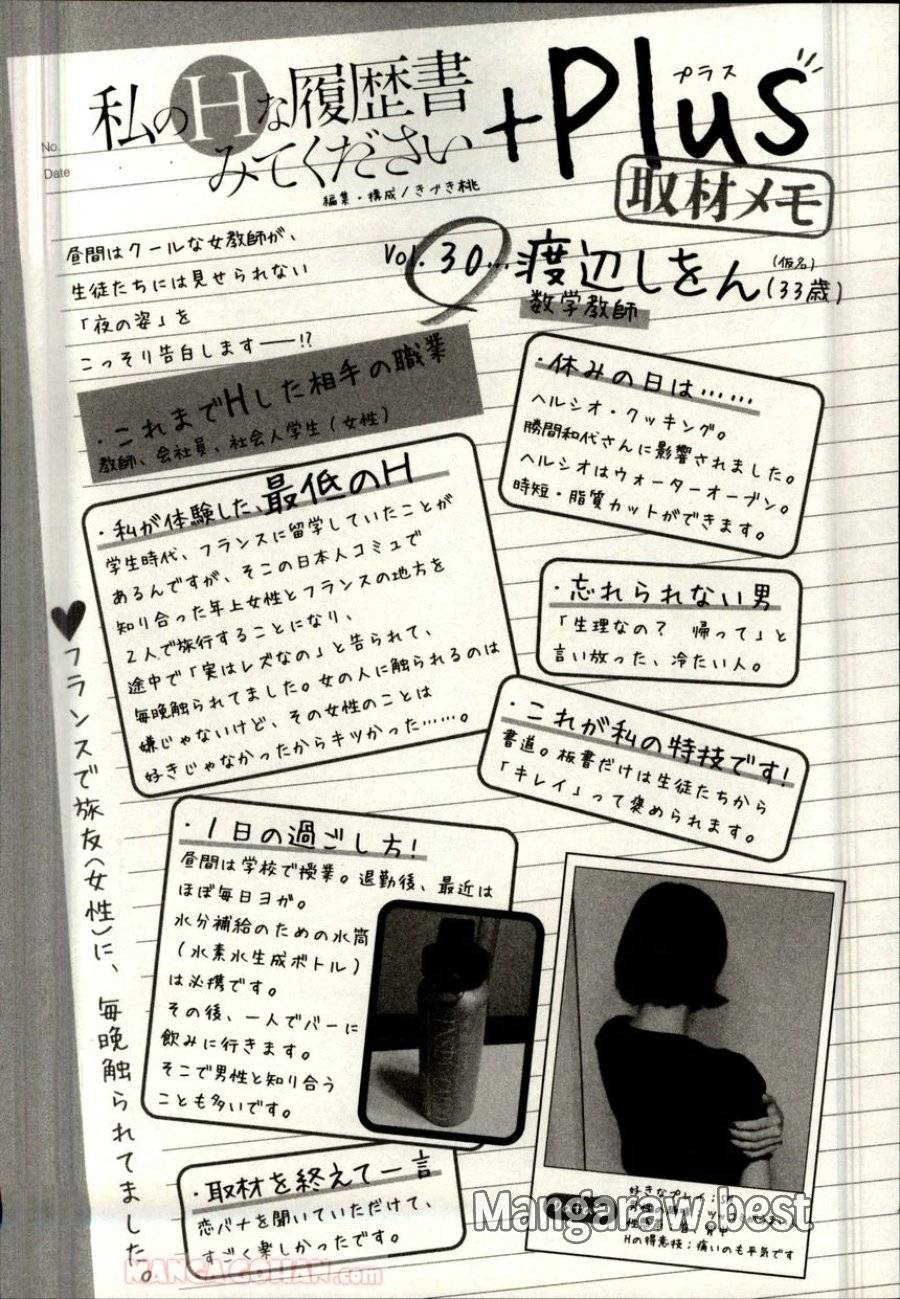 私のHな履歴書
みてください
+Plus
プラス
取材メモ
編集・構成/きづき桃
No.
Date
昼間はクールな女教師が、
生徒たちには見せられない
「夜の姿」を
こっそり告白します——!?
Vol.30…渡辺しをん(仮名)(33歳)
数学教師
・これまでHした相手の職業
教師、会社員、社会人学生(女性)
・休みの日は……
ヘルシオ・クッキング。
勝間和代さんに影響されました。
ヘルシオはウォーターオーブン。
時短・脂質カットができます。
・私が体験した、最低のH
学生時代、フランスに留学していたことが
あるんですが、そこの日本人コミュで
知り合った年上女性とフランスの地方を
2人で旅行することになり、
途中で「実はレズなの」と告られて、
毎晩触られてました。女の人に触られるのは
嫌じゃないけど、その女性のことは
好きじゃなかったからキツかった……。
・忘れられない男
「生理なの? 帰って」と
言い放った、冷たい人。
・これが私の特技です!
書道。板書だけは生徒たちから
「キレイ」って褒められます。
♥フランスで旅友(女性)に、毎晩触られてました。
・1日の過ごし方!
昼間は学校で授業。退勤後、最近は
ほぼ毎日ヨガ。
水分補給のための水筒
(水素水生成ボトル)
は必携です。
その後、一人でバーに
飲みに行きます。
そこで男性と知り合う
ことも多いです。
・取材を終えて一言
恋バナを聞いていただけて、
すごく楽しかったです。
好きなプレイ:
Hの得意技:痛いのも平気です
Mangaraw.best
MANGAGOHAN.com